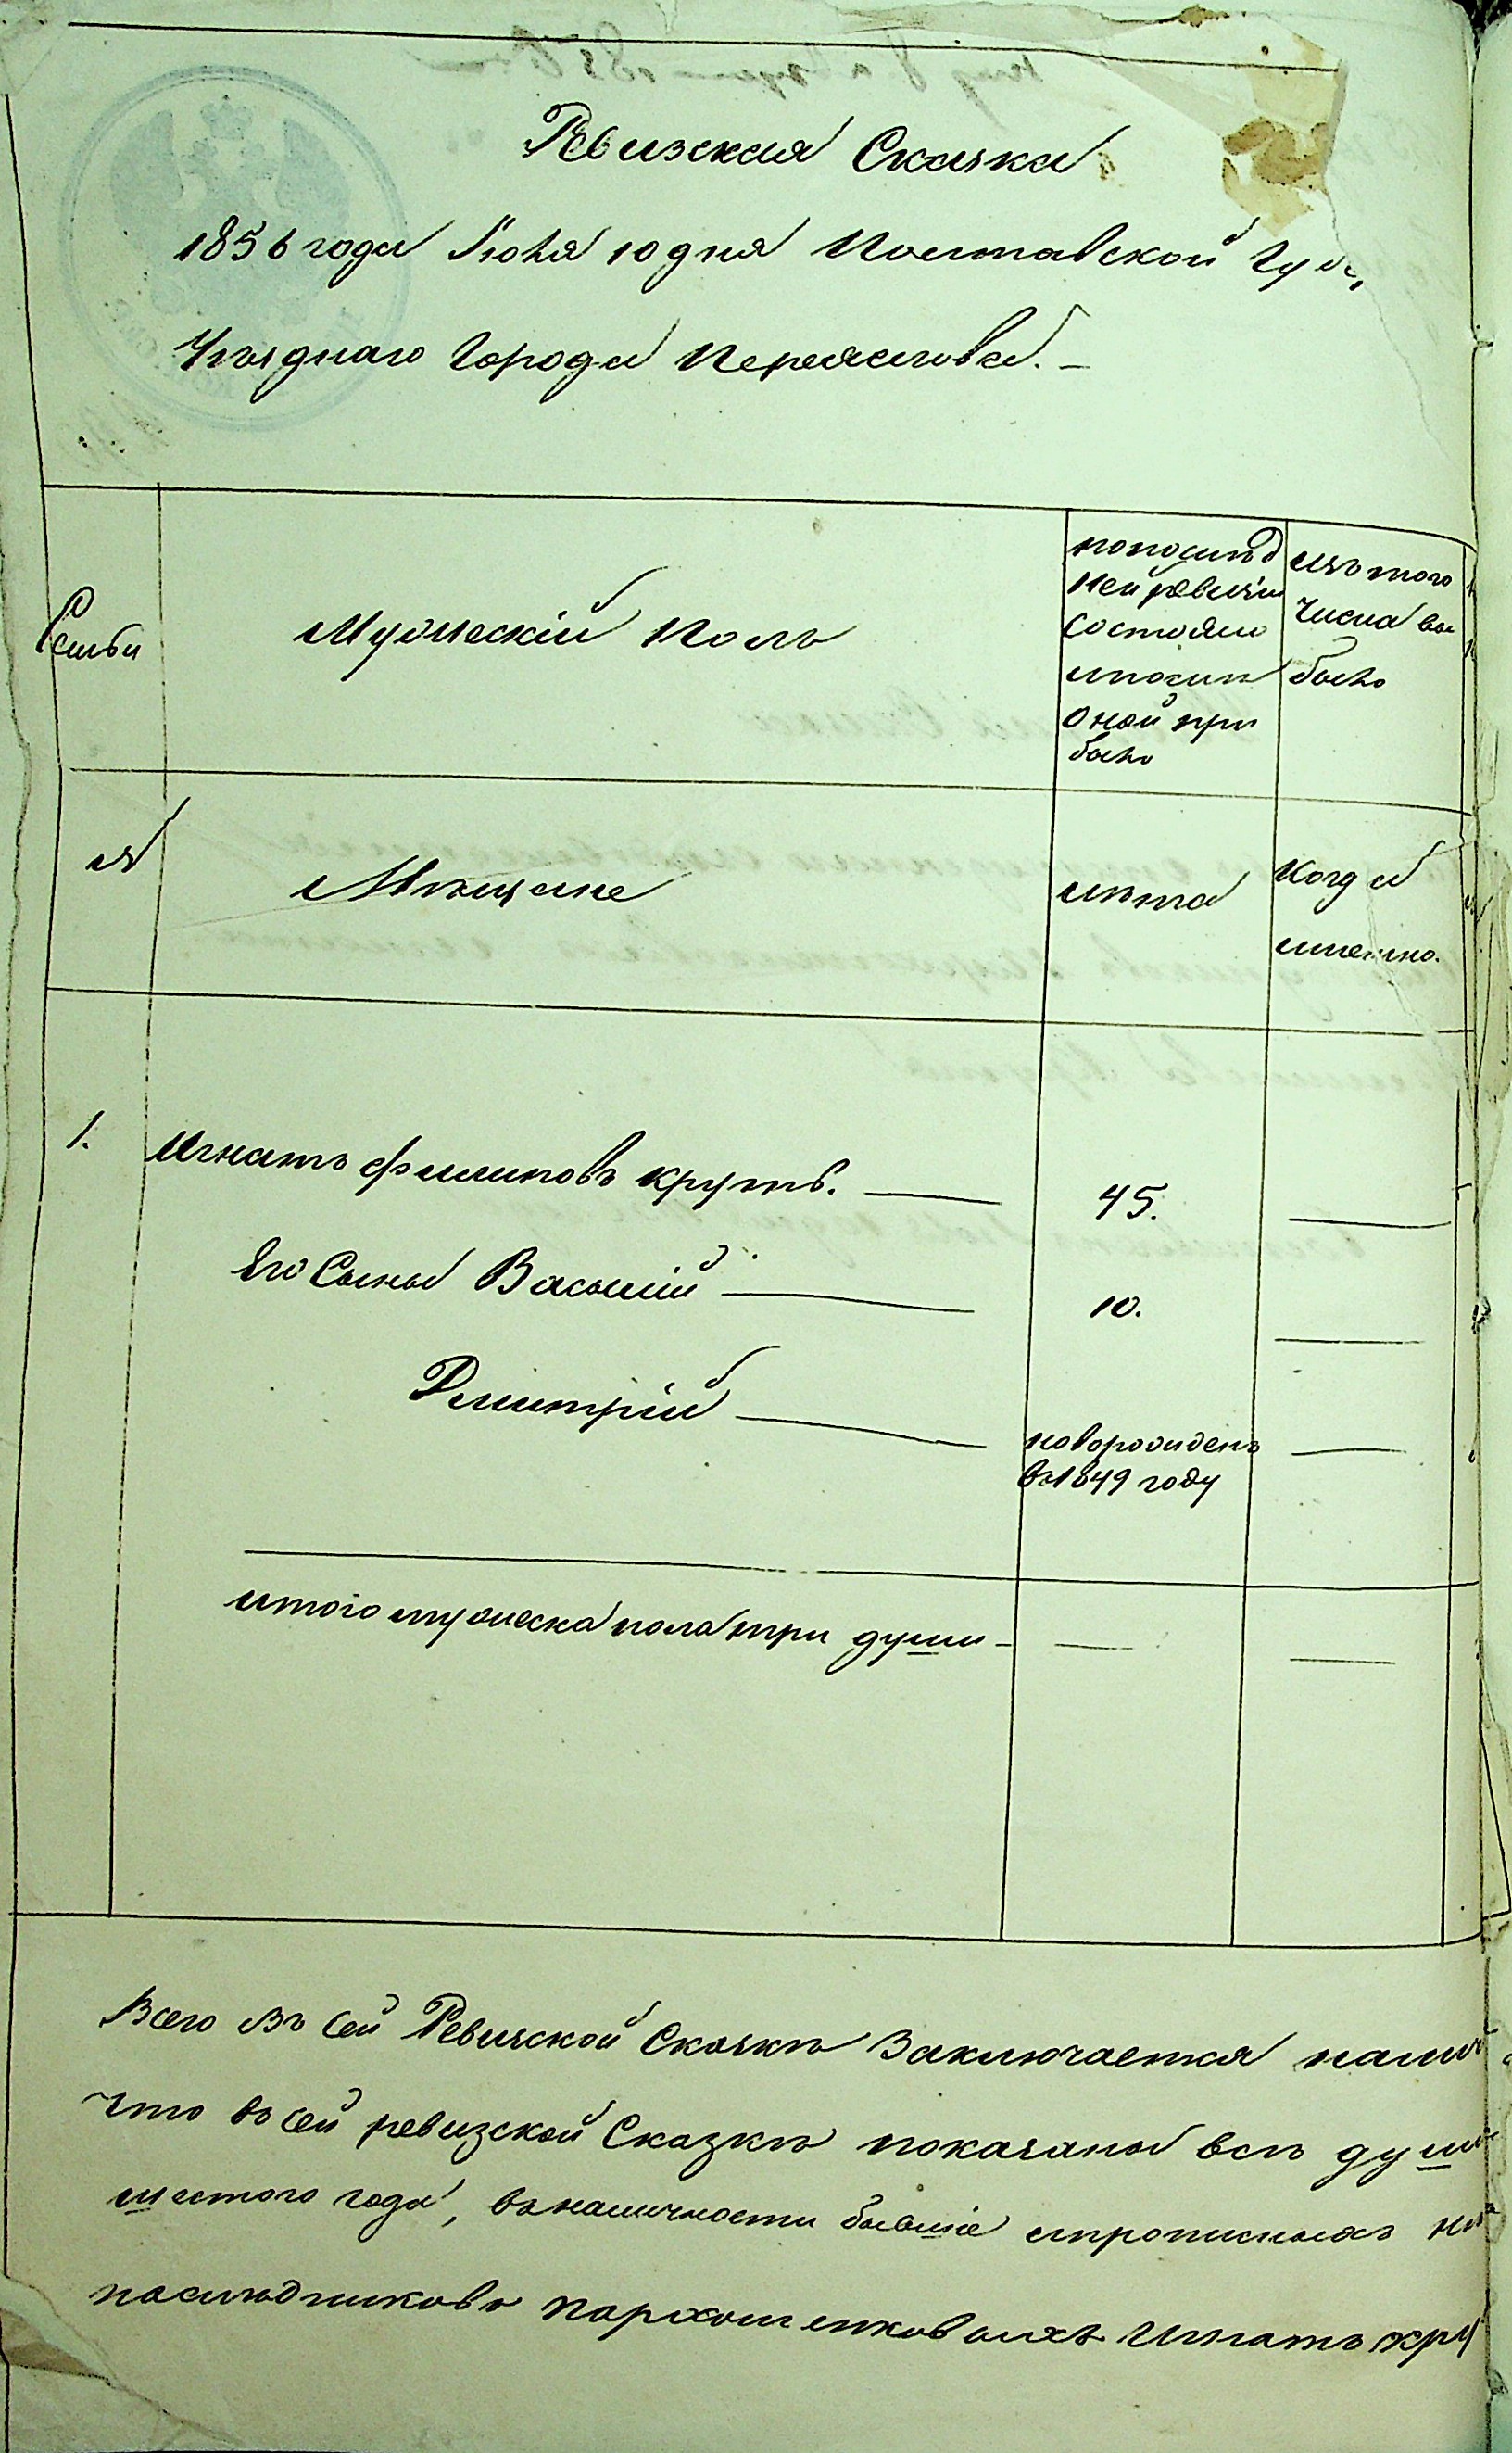 Ревизская Сказка
1856 года Іюня 10 дня Полтавской Губ.
Уѣзднаго Города Переяслова.
Семьи
Мужескій полъ
по послѣд
ней ревизіи
состояло
и послѣ
оной при
было
изъ того
числа вы
было
№
Мѣщане
лѣта
когда
именно.
1. Игнатъ Филиповъ Крутъ. 45.
Его Сыны Василій 10.
Дмитрій
новорожденъ
въ 1849 году
итого мужеска пола три души
Всего въ сей Ревизской Сказкѣ Заключается
что въ сей ревизской Сказкѣ показаны всѣ души
шестого года, въ наличности бывшіе и прописныхъ
наслѣдниковъ Пархоменковыхъ Игнатъ Кру